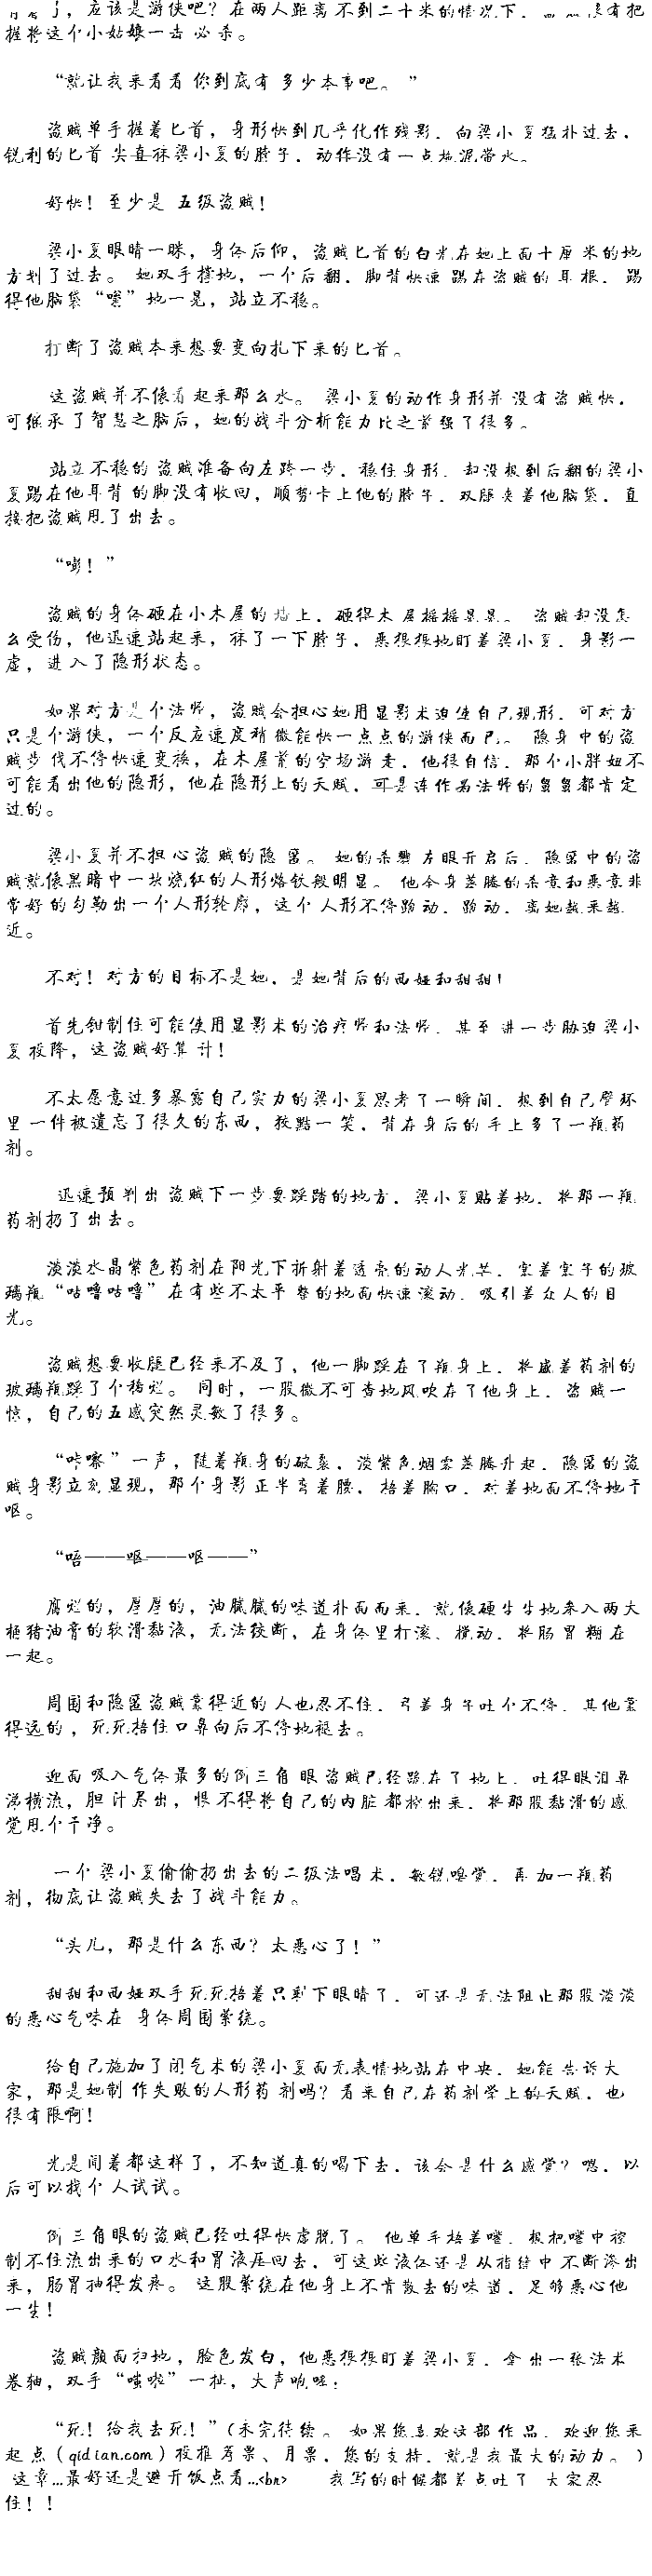 了，应该是游侠吧？在两人距离不到二十米的情况下，有把
握将这个小姑娘一击必杀。
“就让我来看看你到底有多少本事吧。”
盗贼单手握着匕首，身形快到几乎化作残影，向梁小夏猛扑过去，
锐利的匕首尖直抹梁小夏的脖子，动作没有一点拖泥带水。
好快！至少是五级盗贼！
梁小夏眼睛一眯，身体后仰，盗贼匕首的白光在她上面十厘米的地
方划了过去。她双手撑地，一个后翻，脚背快速踢在盗贼的耳根，踢
得他脑袋“嗡”地一晃，站立不稳。
打断了盗贼本来想要变向扎下来的匕首。
这盗贼并不像看起来那么水。梁小夏的动作身形并没有盗贼快，
可继承了智慧之脑后，她的战斗分析能力比之前强了很多。
站立不稳的盗贼准备向左跨一步，稳住身形，却没想到后翻的梁小
夏踢在他耳背的脚没有收回，顺势卡上他的脖子，双腿夹着他脑袋，直
接把盗贼甩了出去。
“嘭！”
盗贼的身体砸在小木屋的墙上，砸得木屋摇摇晃晃。盗贼却没怎
么受伤，他迅速站起来，抹了一下脖子，恶狠狠地盯着梁小夏，身影一
虚，进入了隐形状态。
如果对方是个法师，盗贼会担心她用显影术迫使自己现形，可对方
只是个游侠，一个反应速度稍微能快一点点的游侠而已。隐身中的盗
贼步伐不停快速变换，在木屋前的空场游走，他很自信，那个小胖妞不
可能看出他的隐形，他在隐形上的天赋，可是连作为法师的蛋蛋都肯定
过的。
梁小夏并不担心盗贼的隐匿。她的杀戮左眼开启后，隐匿中的盗
贼就像黑暗中一块烧红的人形烙铁般明显。他全身蒸腾的杀意和恶意非
常好的勾勒出一个人形轮廓，这个人形不停跑动，跑动，离她越来越
近。
不对！对方的目标不是她，是她背后的西娅和甜甜！
首先钳制住可能使用显影术的治疗师和法师，甚至进一步胁迫梁小
夏投降，这盗贼好算计！
不太愿意过多暴露自己实力的梁小夏思考了一瞬间，想到自己臂环
里一件被遗忘了很久的东西，狡黠一笑，背在身后的手上多了一瓶药
剂。
迅速预判出盗贼下一步要踩踏的地方，梁小夏贴着地，将那一瓶
药剂扔了出去。
淡淡水晶紫色药剂在阳光下折射着透亮的动人光芒，塞着塞子的玻
璃瓶“咕噜咕噜”在有些不太平整的地面快速滚动，吸引着众人的目
光。
盗贼想要收腿已经来不及了，他一脚踩在了瓶身上，将盛着药剂的
玻璃瓶踩了个稀烂。同时，一股微不可查地风吹在了他身上，盗贼一
惊，自己的五感突然灵敏了很多。
“咔嚓”一声，随着瓶身的破裂，淡紫色烟雾蒸腾升起，隐匿的盗
贼身影立刻显现，那个身影正半弯着腰，捂着胸口，对着地面不停地干
呕。
“唔——呕——呕——”
腐烂的，厚厚的，油腻腻的味道扑面而来，就像硬生生地灌入两大
桶猪油膏的软滑黏液，无法绞断，在身体里打滚、搅动，将肠胃糊在
一起。
周围和隐匿盗贼靠得近的人也忍不住，弓着身子吐个不停，其他靠
得远的，死死捂住口鼻向后不停地褪去。
迎面吸入气体最多的倒三角眼盗贼已经跪在了地上，吐得眼泪鼻
涕横流，胆汁尽出，恨不得将自己的内脏都掏出来，将那股黏滑的感
觉甩个干净。
一个梁小夏偷偷扔出去的二级法唱术，敏锐嗅觉，再加一瓶药
剂，彻底让盗贼失去了战斗能力。
“头儿，那是什么东西？太恶心了！”
甜甜和西娅双手死死捂着只剩下眼睛了，可还是无法阻止那股淡淡
的恶心气味在身体周围萦绕。
给自己施加了闭气术的梁小夏面无表情地站在中央，她能告诉大
家，那是她制作失败的人形药剂吗？看来自己在药剂学上的天赋，也
很有限啊！
光是闻着都这样了，不知道真的喝下去，该会是什么感觉？嗯，以
后可以找个人试试。
倒三角眼的盗贼已经吐得快虚脱了。他单手捂着嘴，想把嘴中控
制不住流出来的口水和胃液压回去，可这些液体还是从指缝中不断渗出
来，肠胃抽得发疼。这股萦绕在他身上不肯散去的味道，足够恶心他
一生！
盗贼颜面扫地，脸色发白，他恶狠狠盯着梁小夏，拿出一张法术
卷轴，双手“嗤啦”一扯，大声响哇：
“死！给我去死！”（未完待续。如果您喜欢这部作品，欢迎您来
起点（qidian.com）投推荐票、月票，您的支持，就是我最大的动力。）
这章...最好还是避开饭点看...<br> 我写的时候都差点吐了 大家忍
住！！